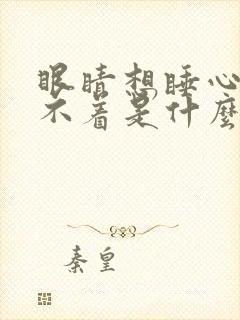 眼睛想睡心
不着是什麼
秦皇